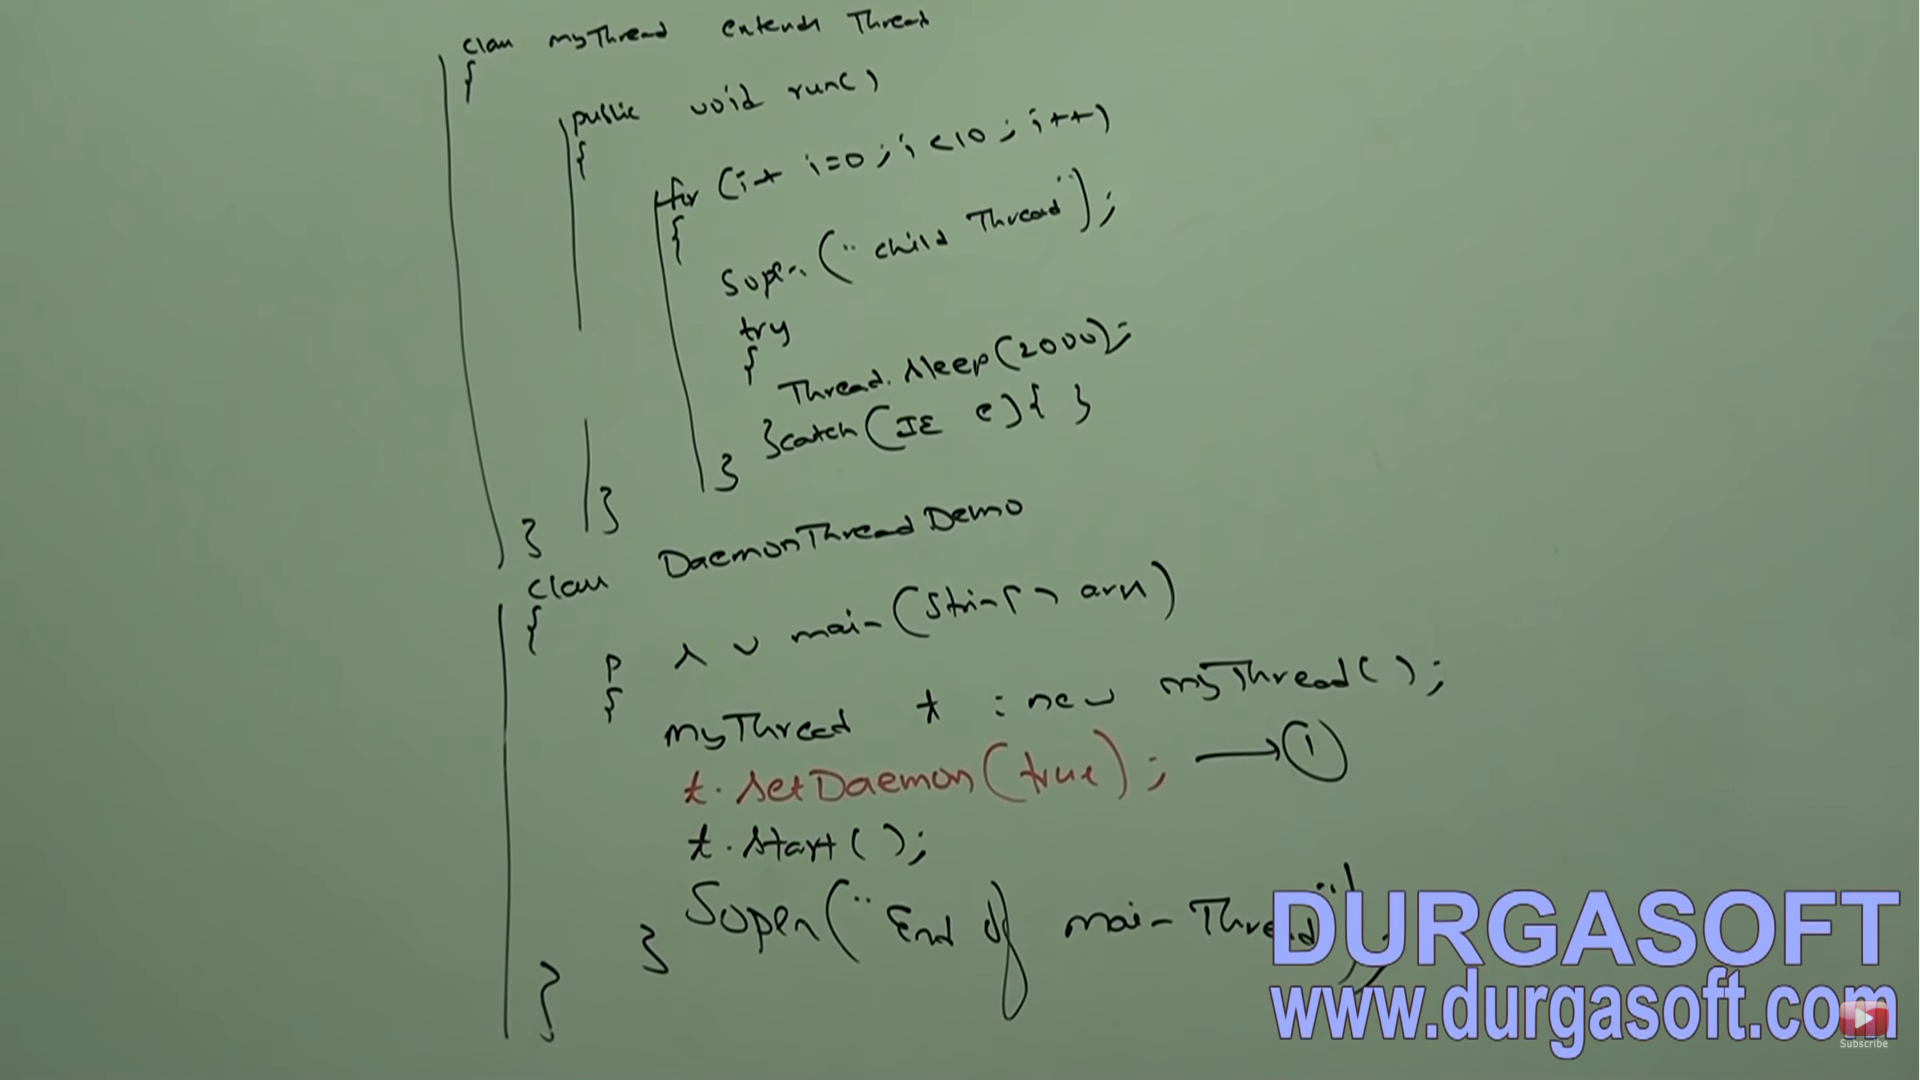 class myThread extends Thread
{
public void run()
{
for (int i=0; i<10; i++)
{
Sopln("child Thread");
try
{
Thread.sleep(2000);
}catch(IE e){ }
}
}
}
class DaemonThreadDemo
{
p s v main(String[] args)
{
myThread t = new myThread();
t.setDaemon(true); → 1
t.start();
Sopln("End of main Thread");
}
}
DURGASOFT
www.durgasoft.com
Subscribe